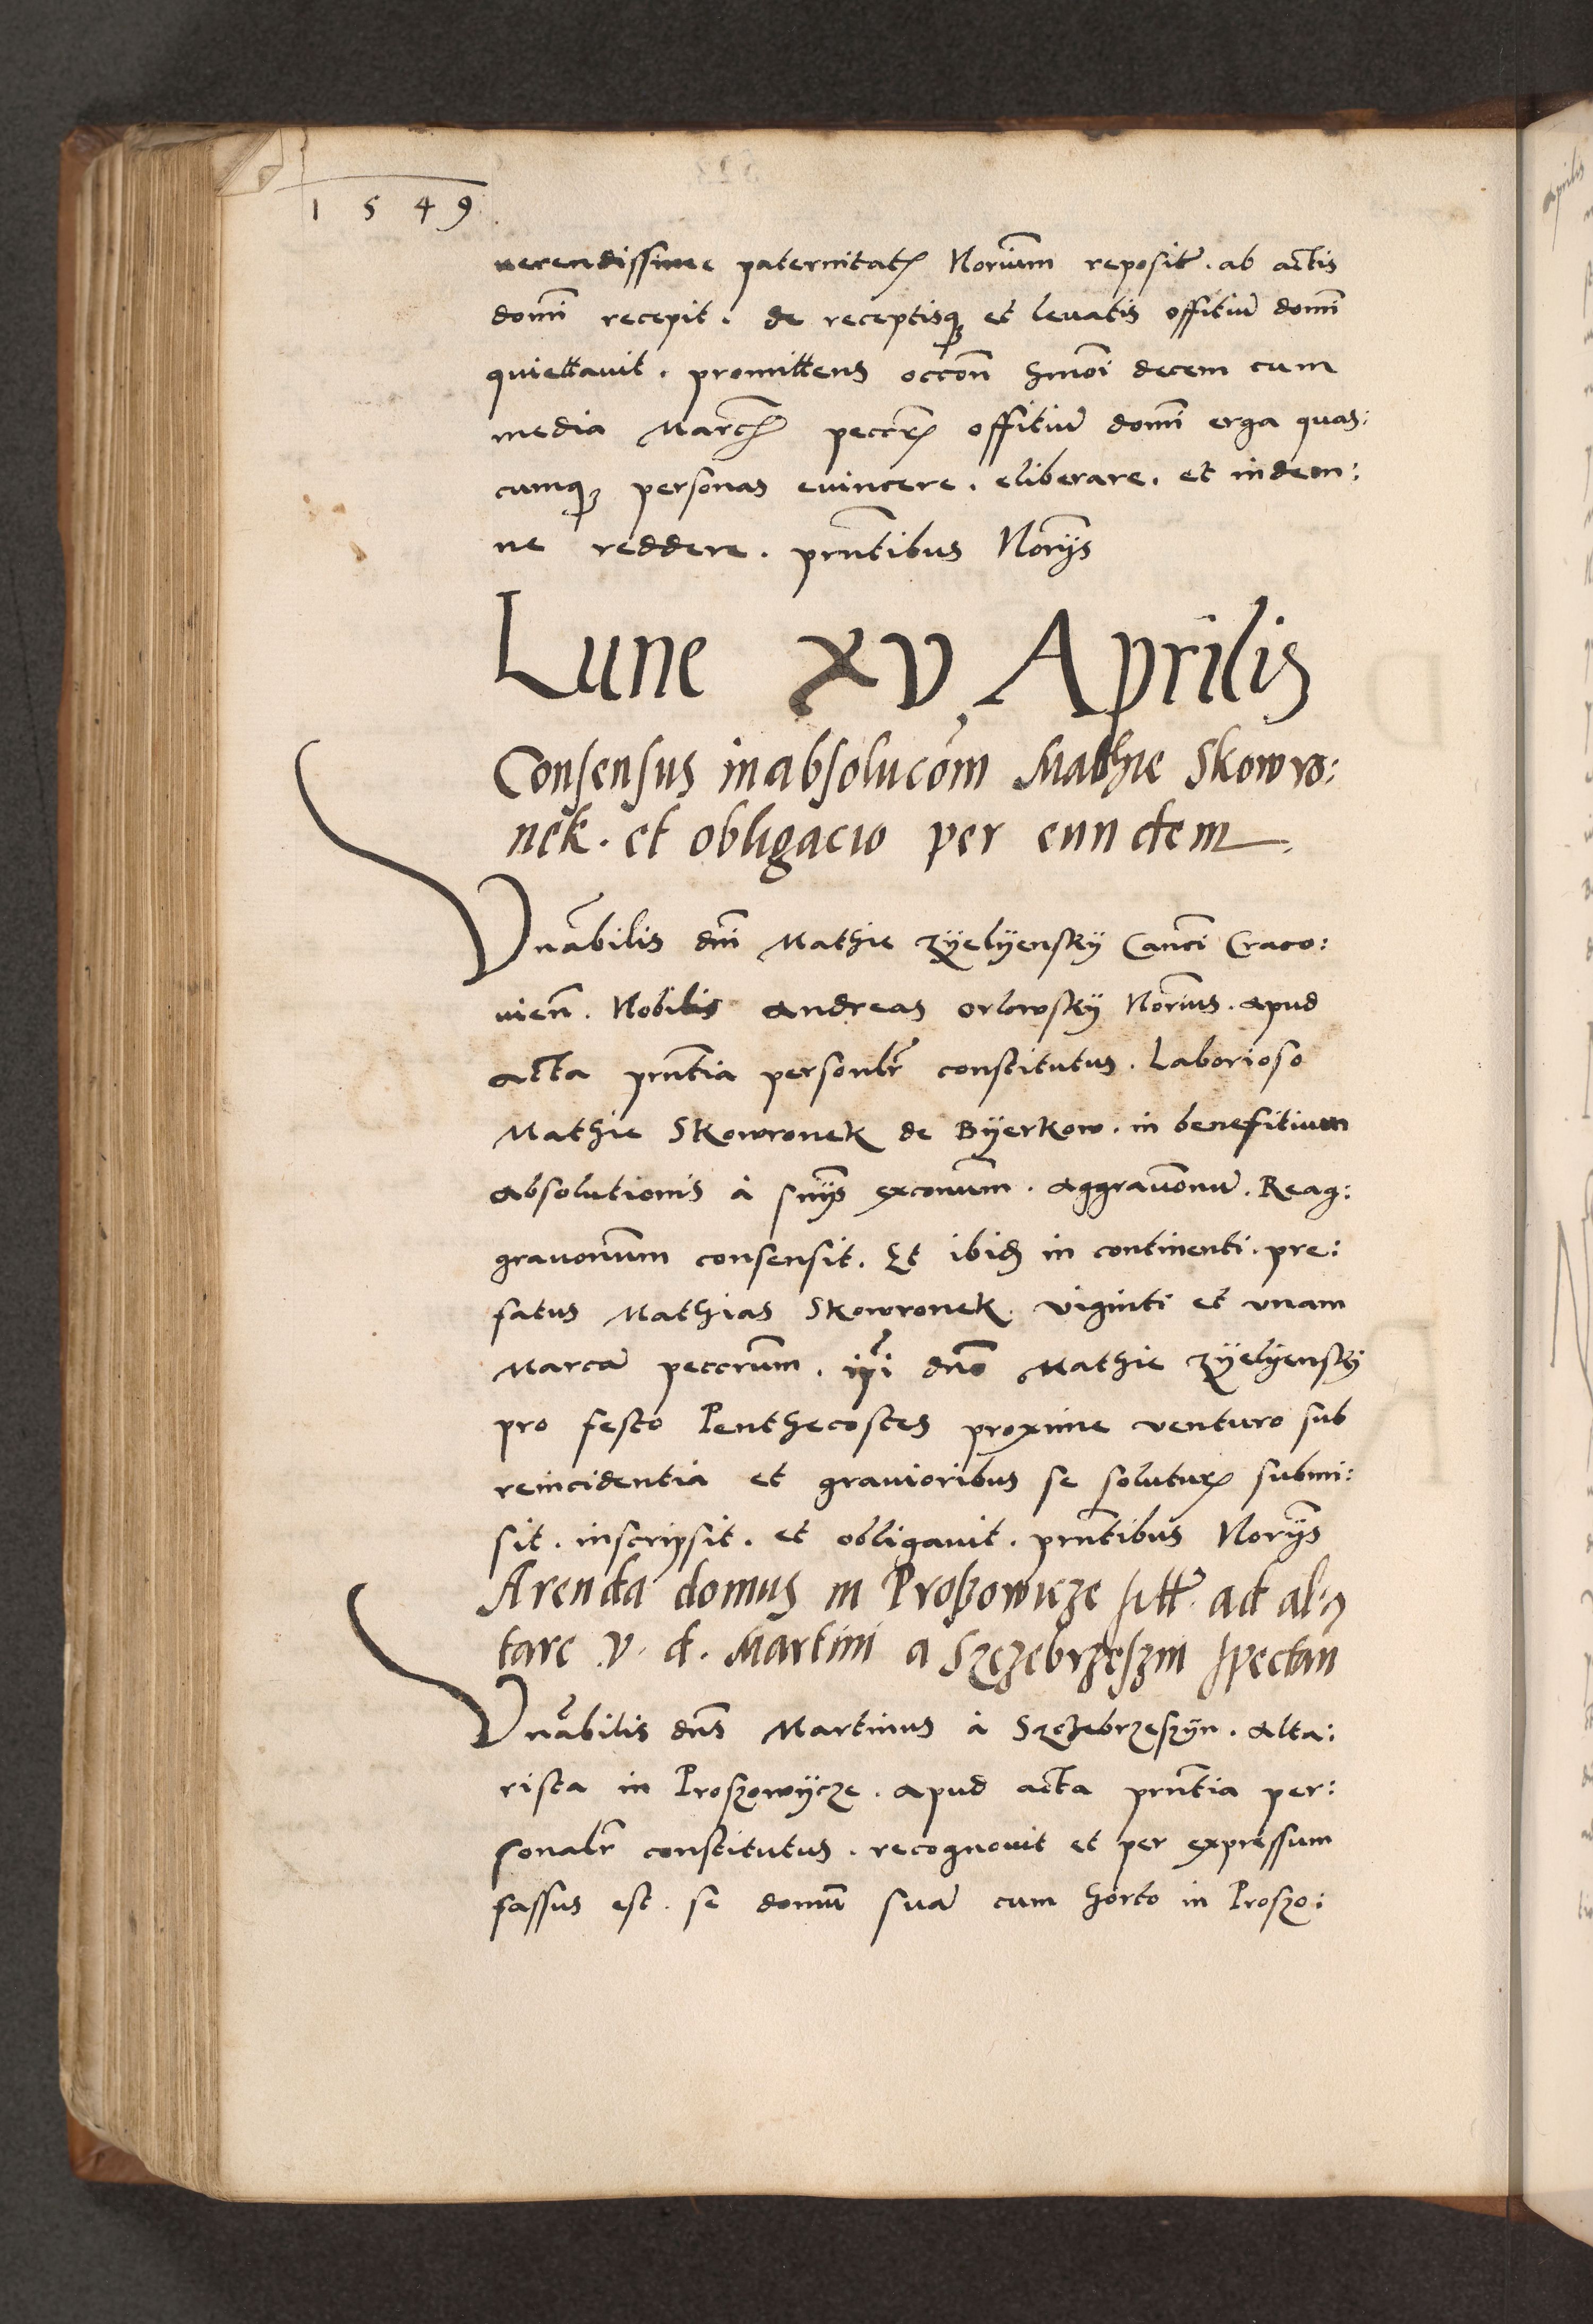 1549
uerendissime paternitatꝭ Norium̃ reposit̃. ab actis
dom̃i recepit. de receptisqꝫ et leuatis offitiũ dom̃i
quiettauit. promittens occoñ hmõi decem cum
media March̃ peccꝝ offitiũ dom̃i erga quas:
cumqꝫ personas euincere. eliberare. et indem:
ne reddere. prñtibus Norijs̃
Lune XV Aprilis
Consensus in absolucõm Mathie Skowro:
nek. et obligacio per eundem
Vnãbilis dñi Mathie Zÿelÿenskÿ Canci Craco:
uieñ. Nobilis Andreas Orlowskÿ Norius̃. apud
acta prñtia personlr̃ constitutus. Laborioso
Mathie Skowronek de Bÿerkow. in benefitium
absolutionis à snijs̃ exconum̃. aggrauõnũ. Reag:
grauonum̃ consensit. Et ibidꝫ in continenti. pre:
fatus Mathias Skowronek. viginti et vnam
Marcã peccrum̃. ip̃i dño Mathie Zÿelÿenskÿ
pro festo Penthecostes proxime venturo sub
reincidentia et grauioribus se soluturꝝ submi:
sit. inscripsit. et obligauit. prñtibus Norijs̃
Arenda domus in Proszowicze sitt̃. ad al:
tare v. d. Martini a Szczebrzeszin spectañ
Vnãbilis dñs Martinus à Szczebrzeszÿn. Alta:
rista in Proszowÿcze. apud acta prñtia per:
sonalr̃ constitutus. recognouit et per expressum
fassus est. se domũ suã cum horto in Proszo: